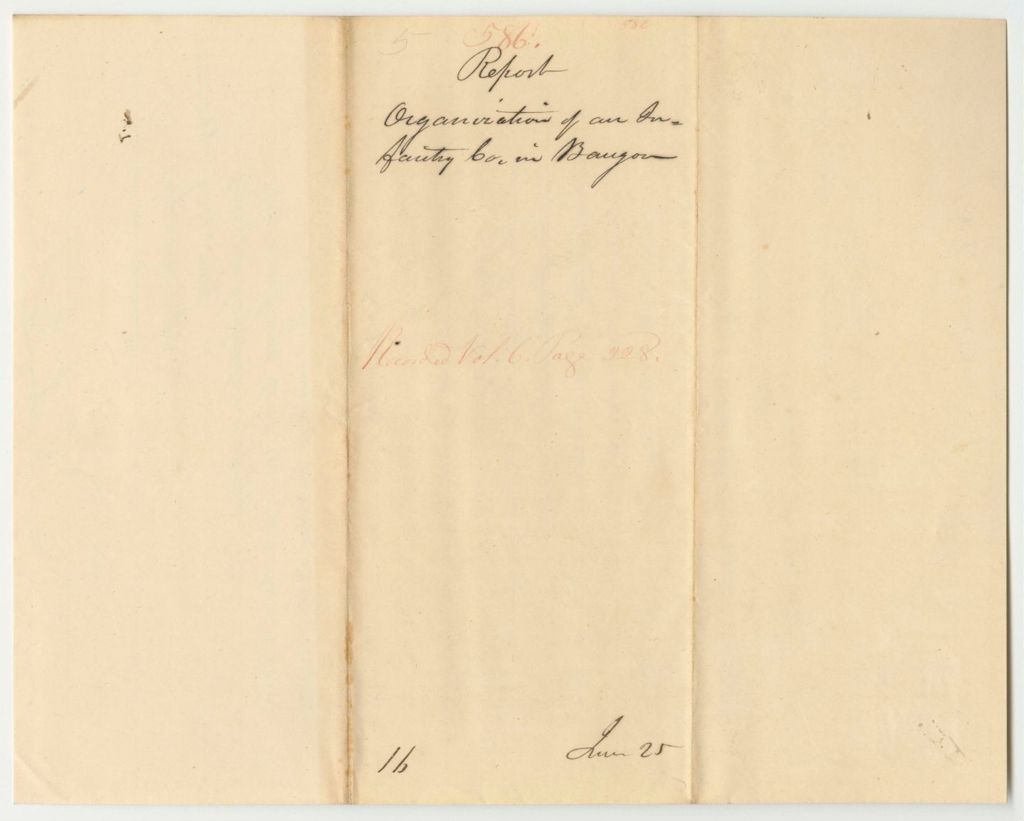 5 586. 586
Report
Organization of an In=
fantry Co. in Bangor
Recorded Vol. 6. Page 228.
16 June 25